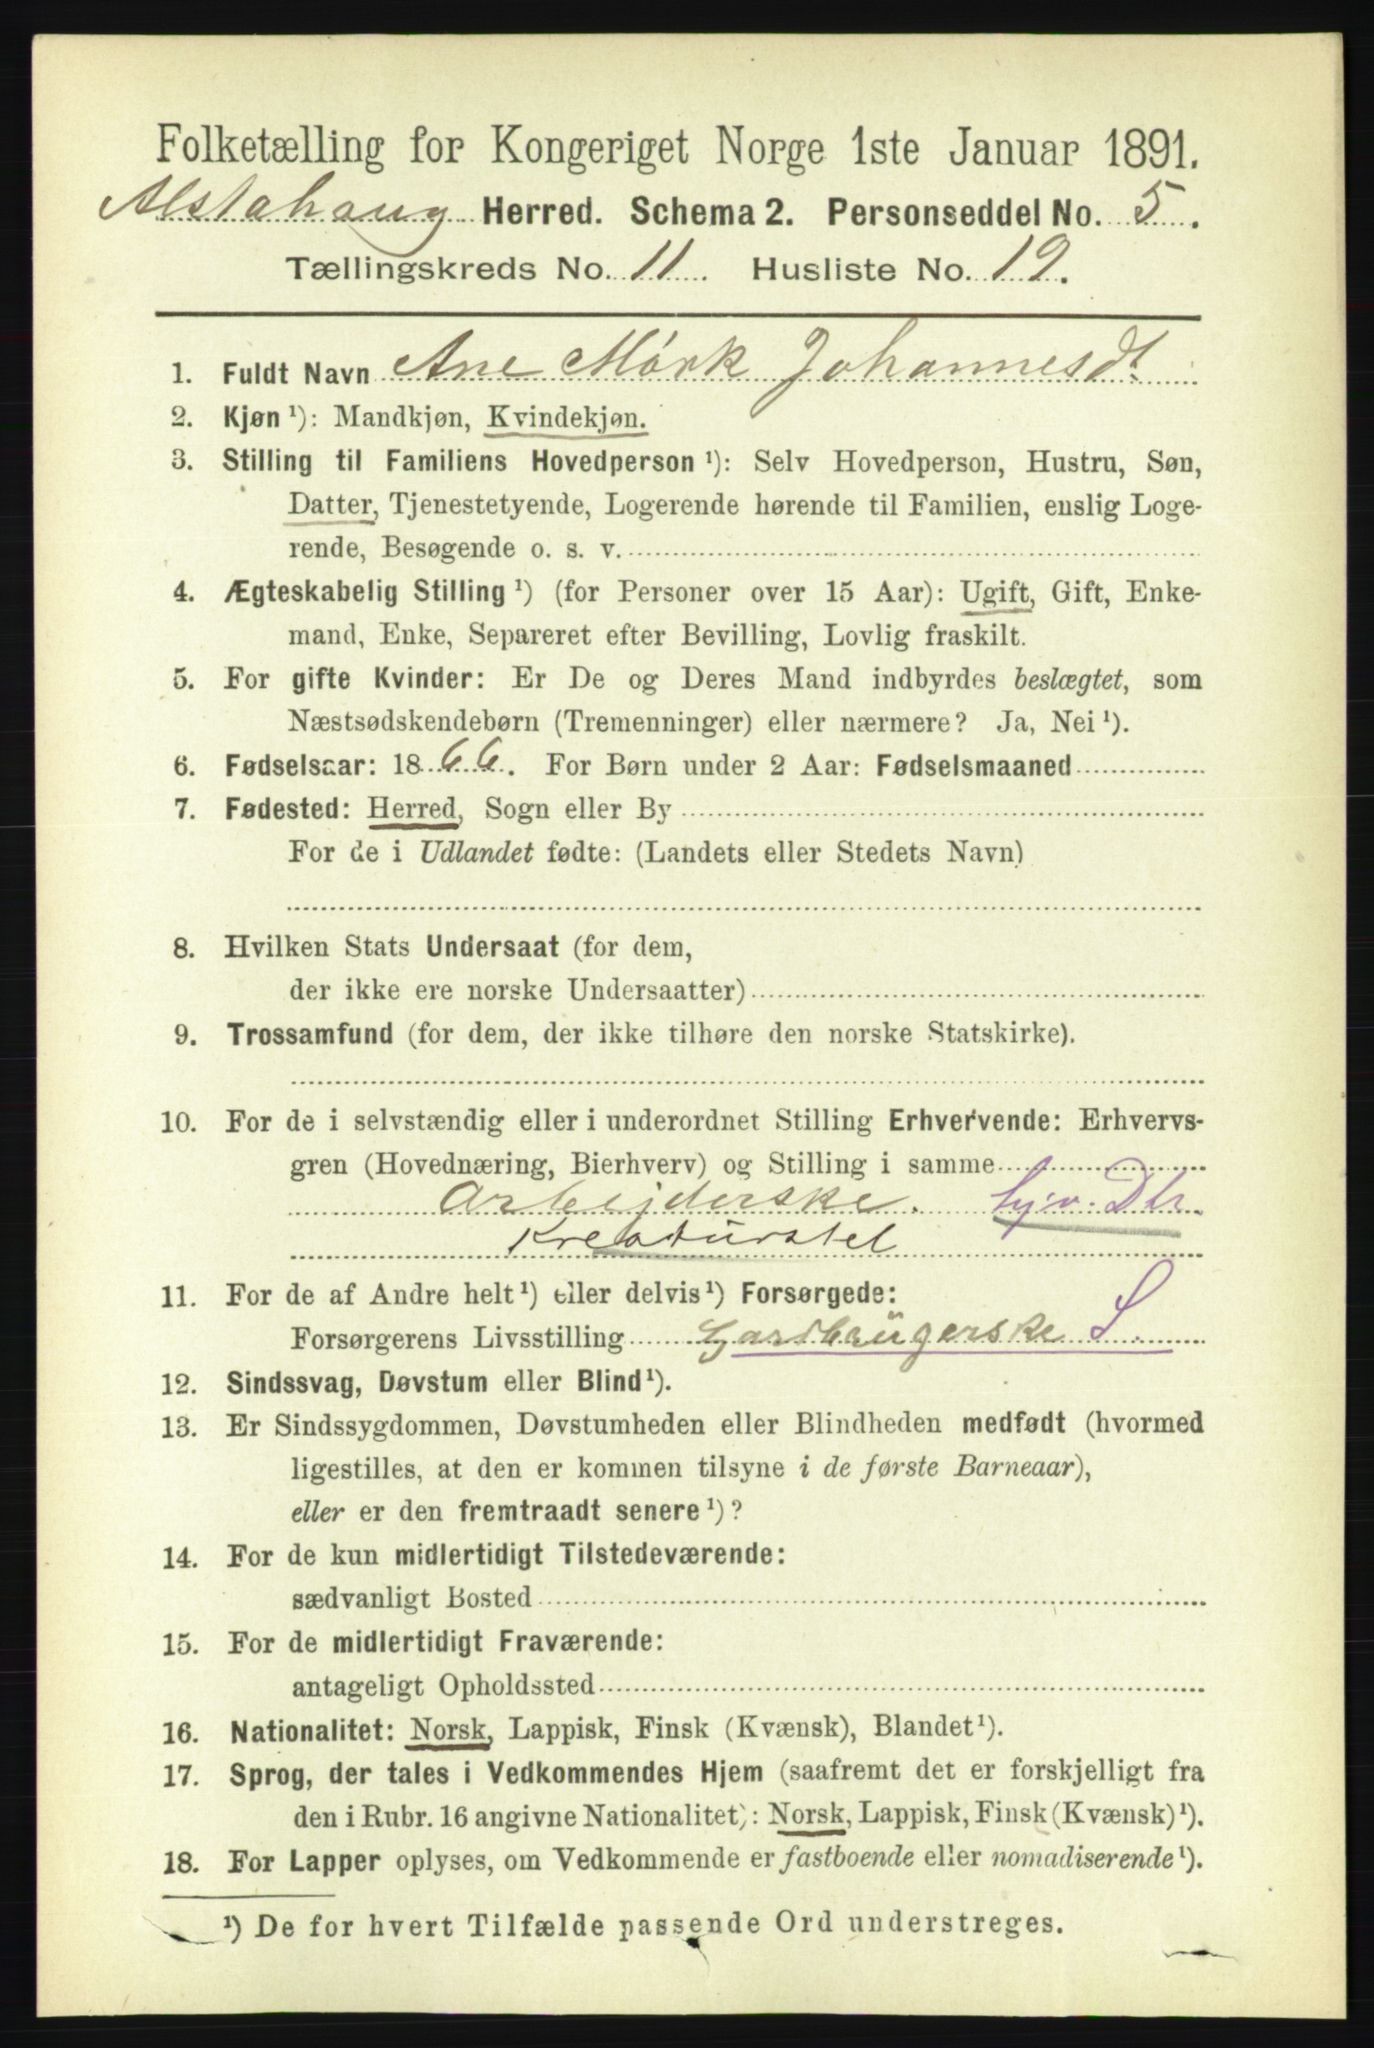 Folketælling for Kongeriget Norge 1ste Januar 1891.
Alstahaug Herred. Schema 2. Personseddel No. 5.
Tællingskreds No. 11. Husliste No. 19.
1. Fuldt Navn Ane Mørk Johannesdt.
2. Kjøn ¹): Mandkjøn, Kvindekjøn.
3. Stilling til Familiens Hovedperson ¹): Selv Hovedperson, Hustru, Søn,
Datter, Tjenestetyende, Logerende hørende til Familien, enslig Loge-
rende, Besøgende o. s. v.
4. Ægteskabelig Stilling ¹) (for Personer over 15 Aar): Ugift, Gift, Enke-
mand, Enke, Separeret efter Bevilling, Lovlig fraskilt.
5. For gifte Kvinder: Er De og Deres Mand indbyrdes beslægtet, som
Næstsødskendebørn (Tremenninger) eller nærmere? Ja, Nei ¹).
6. Fødselsaar: 1866. For Børn under 2 Aar: Fødselsmaaned
7. Fødested: Herred, Sogn eller By
For de i Udlandet fødte: (Landets eller Stedets Navn)
8. Hvilken Stats Undersaat (for dem,
der ikke ere norske Undersaatter)
9. Trossamfund (for dem, der ikke tilhøre den norske Statskirke).
10. For de i selvstændig eller i underordnet Stilling Erhvervende: Erhvervs-
gren (Hovednæring, Bierhverv) og Stilling i samme
Arbejderske. hjv. Dtr.
Kreaturstel
11. For de af Andre helt ¹) eller delvis ¹) Forsørgede:
Forsørgerens Livsstilling Gardbrügerske S.
12. Sindssvag, Døvstum eller Blind ¹).
13. Er Sindssygdommen, Døvstumheden eller Blindheden medfødt (hvormed
ligestilles, at den er kommen tilsyne i de første Barneaar),
eller er den fremtraadt senere ¹)?
14. For de kun midlertidigt Tilstedeværende:
sædvanligt Bosted
15. For de midlertidigt Fraværende:
antageligt Opholdssted
16. Nationalitet: Norsk, Lappisk, Finsk (Kvænsk), Blandet ¹).
17. Sprog, der tales i Vedkommendes Hjem (saafremt det er forskjelligt fra
den i Rubr. 16 angivne Nationalitet): Norsk, Lappisk, Finsk (Kvænsk) ¹).
18. For Lapper oplyses, om Vedkommende er fastboende eller nomadiserende ¹).
¹) De for hvert Tilfælde passende Ord understreges.